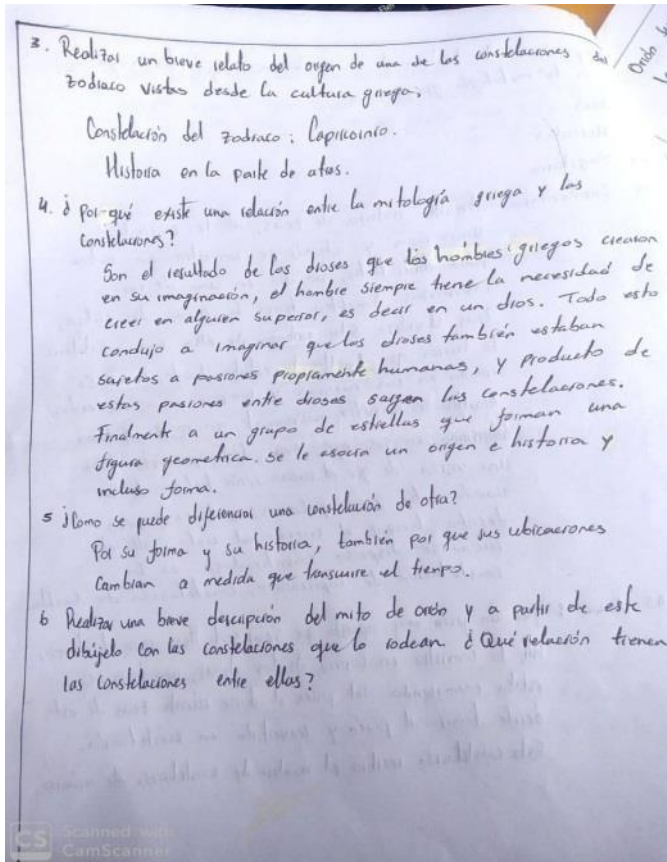 3. Realizar un breve relato del origen de una de las constelaciones del
zodiaco vistas desde la cultura griega.
Constelación del zodiaco: Capricornio.
Historia en la parte de atras.
4. ¿Por qué existe una relación entre la mitología griega y las
constelaciones?
Son el resultado de los dioses que los hombres griegos crearon
en su imaginación, el hombre siempre tiene la necesidad de
creer en alguien superior, es decir en un dios. Todo esto
condujo a imaginar que los dioses también estaban
sujetos a pasiones propiamente humanas, y producto de
estas pasiones entre dioses surgen las constelaciones.
Finalmente a un grupo de estrellas que forman una
figura geometrica. se le asocia un origen e historia y
incluso forma.
5 ¿Como se puede diferenciar una constelación de otra?
Por su forma y su historia, también por que sus ubicaciones
cambian a medida que transcurre el tiempo.
6 Realizar una breve descripción del mito de orión y a partir de este
dibújelo con las constelaciones que lo rodean ¿Qué relación tienen
las constelaciones entre ellas?
CS Scanned with
CamScanner